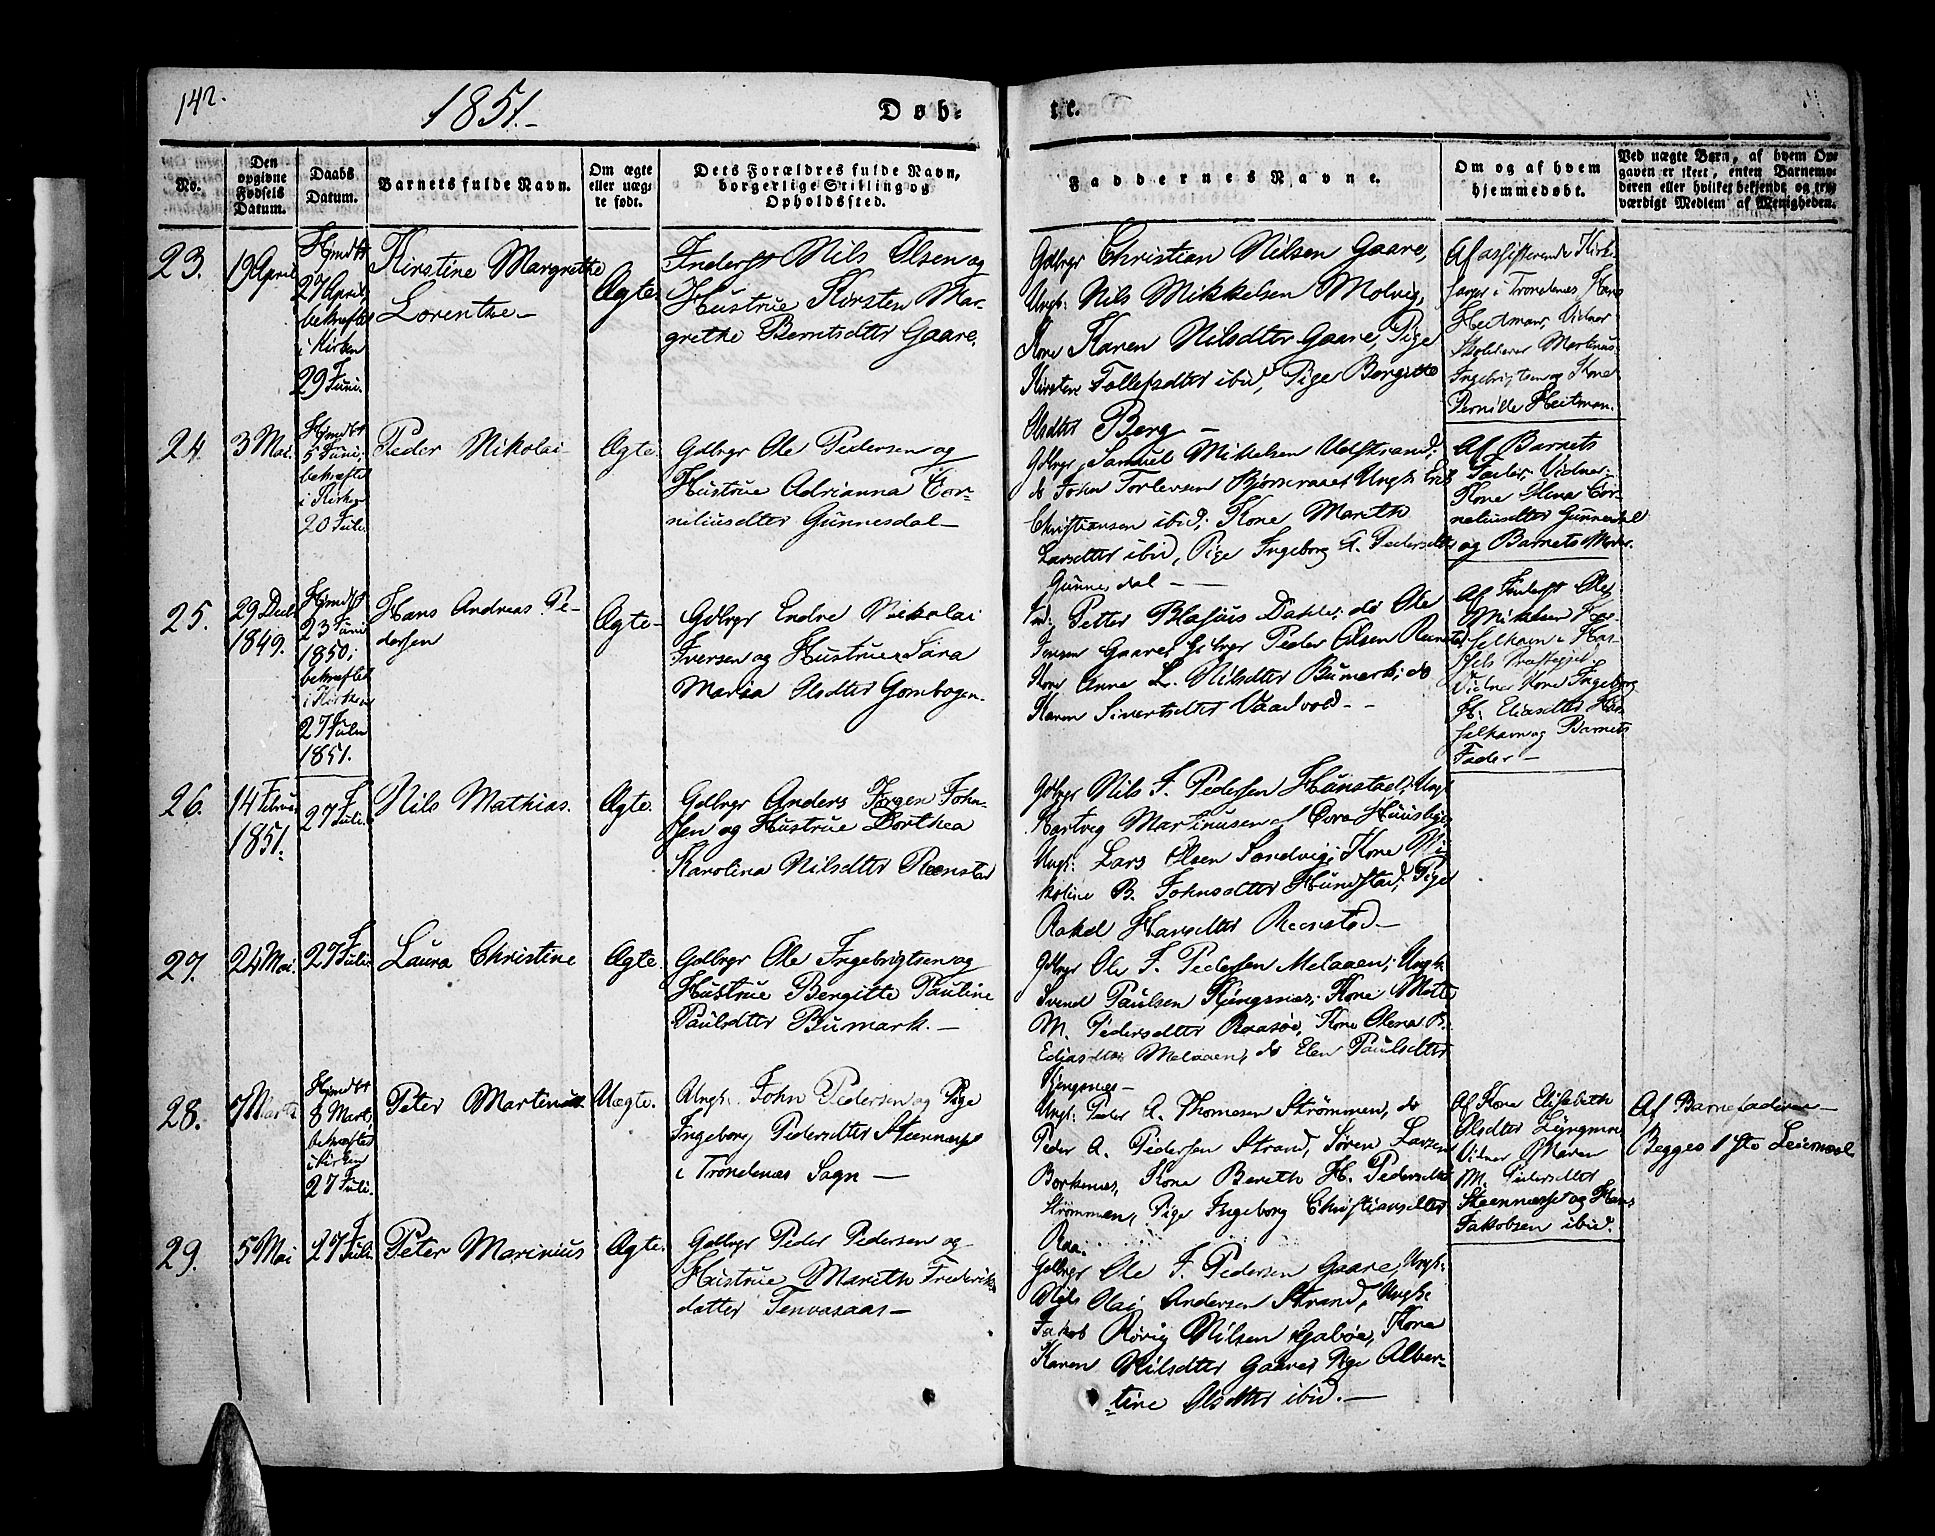 142.
1851.-
Døb-
te.
No.
Den opgivne Fødsels Datum.
Daabs Datum.
Barnets fulde Navn.
Om ægte eller uæg-te født.
Dets Forældres fulde Navn, borgerlige Stilling og Opholdssted.
Faddernes Navne.
Om og af hvem hjemmedøbt.
Ved uægte Børn, af hvem Op-gaven er skeet, enten Barnemo-deren eller hvilket bekjendt og tro-værdigt Medlem af Menigheden.
23.
19 April
Hjmdbt
27 April,
bekræftet
i Kirken
29 Juni.
Kirstine Margrethe
Lorenthe-
Ægte.
Inderst Nils Olsen og
Hustrue Kirsten Mar-
grethe Berntsdtter Gaare.
Gdbrgr Christian Nilsen Gaare,
Ungk: Nils Mikkelsen Molvig,
Kone Karen Nilsdtter Gaare, Pige
Kirsten Tollefsdtter ibid, Pige Bergitte
Olsdtter Berg -
Af assisterende Kirk-
sanger i Trondenes Hans
Heitman, Vidner
Skoleherer Martinus
Ingebrigtsen og Kone
Pernille Heitman.
24.
3 Mai.
Hjmdbt
5 Juni,
bekræftet
i Kirken
20 Juli
Peder Nikolai-
Ægte.
Gdbrgr Ole Pedersen og
Hustrue Adrianna Cor-
niliusdtter Gunnesdal-
Gdbrgr Samuel Mikelsen Udstrand;
do John Torlevsen Bjørneraae, Ungk: Erik
Christiansen ibid; Kone Marith
Larsdtter ibid, Pige Ingeborg A. Pedersdtter
Gunnesdal -
Af Barnets
Fader, Vidner:
Kone Elena Cor-
neliusdtter Gunnesdal
og Barnets Moder.
25.
29 Decbr
1849.
Hjmdbt
23 Juni
1850;
bekræftet
i Kirken
27 Juli
1851.
Hans Andreas Pe-
dersen
Ægte-
Gdbrgr Endre Nikolai
Iversen og Hustrue Sara
Maria Olsdtter Gombogen.
Ind. Petter Blasius Dahle; do Ole
Jensen Gaare, Gdbrgr Peder Olsen Reenstad
Kone Anne L. Nilsdtter Bumark; do
Karen Sivertsdtter Vaadvold--
Af Inderst Ole
Mikelsen Has-
selhavn i Has-
sels Præstegjel.
Vidner Kone Ingeborg
H. Eliasdtter Has-
selhavn og Barnets
Fader-
26.
14 Februar
1851.
27 Juli.
Nils Mathias.
Ægte.
Gdbrgr Anders Jørgen John-
sen og Hustrue Dorthea
Karolina Nilsdtter Reenstad
Gdbrgr Nils J. Pedersen Hunstad; Ungk
Hartvig Martinusen
Ungk: Lars Olsen Sandvig; Kone Ni-
koline B. Johnsdtter Hundstad; Pige
Rakel Hansdtter Reenstad-
27.
24 Mai.
27 Juli
Laura Christine
Ægte.
Gdbrgr Ole Ingebrigtsen og
Hustrue Bergitte Pauline
Paulsdtter Bumark.-
Gdbrgr Ole J. Pedersen Melaaen; Ungk:
Svend Paulsen Kongsnes; Kone Mette
M. Pedersdtter Raasøe, Kone Olena B.
Eliasdtter Melaaen; do Elen Paulsdtter
Kongsnes-
28.
7 Marts
Hjmdbt
8 Mart,
bekræftet
i Kirken
27 Juli.
Peter Martenus.
Uægte.
Ungk: John Pedersen og Pige
Ingeborg Pedersdtter Steennæsset
i Trondenes Sogn-
Ungk: Peder A. Thomesen Strømmen, do
Peder A. Pedersen Strand, Søren Larsen
Borkenæs, Kone Berith H. Pedersdtter
Strømmen, Pige Ingeborg Christiansdtter
Raa.
Af Kone Elisabeth
Olsdtter Lyngmo
Vidner Maren
M. Pedersdtter
Steennæsset og Hans
Jakobsen ibid.
Af Barnefaderen-
Begges 1ste Leiermaal
29.
5 Mai
27 Juli
Peter Marinius
Ægte.
Gdbrgr Peder Pedersen og
Hustrue Marith Frederiks
datter Tenvasaas-
Gdbrgr Ole J. Pedersen Gaare, Ungk:
Nils Olai Andersen Strand, Ungk:
Jakob Rørig Nilsen Gabøe, Kone
Karen Nilsdtter Gaare, Pige Alber-
tine Olsdtter ibid.-